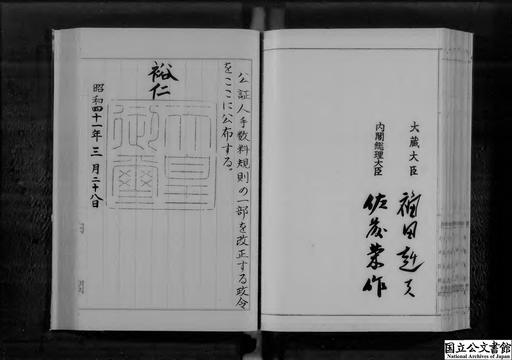 公証人手数料規則の一部を改正する政令
をここに公布する。
裕仁
天皇御璽
昭和四十一年三月二十八日
大蔵大臣
福田赳夫
内閣総理大臣
佐藤榮作
国立公文書館
National Archives of Japan